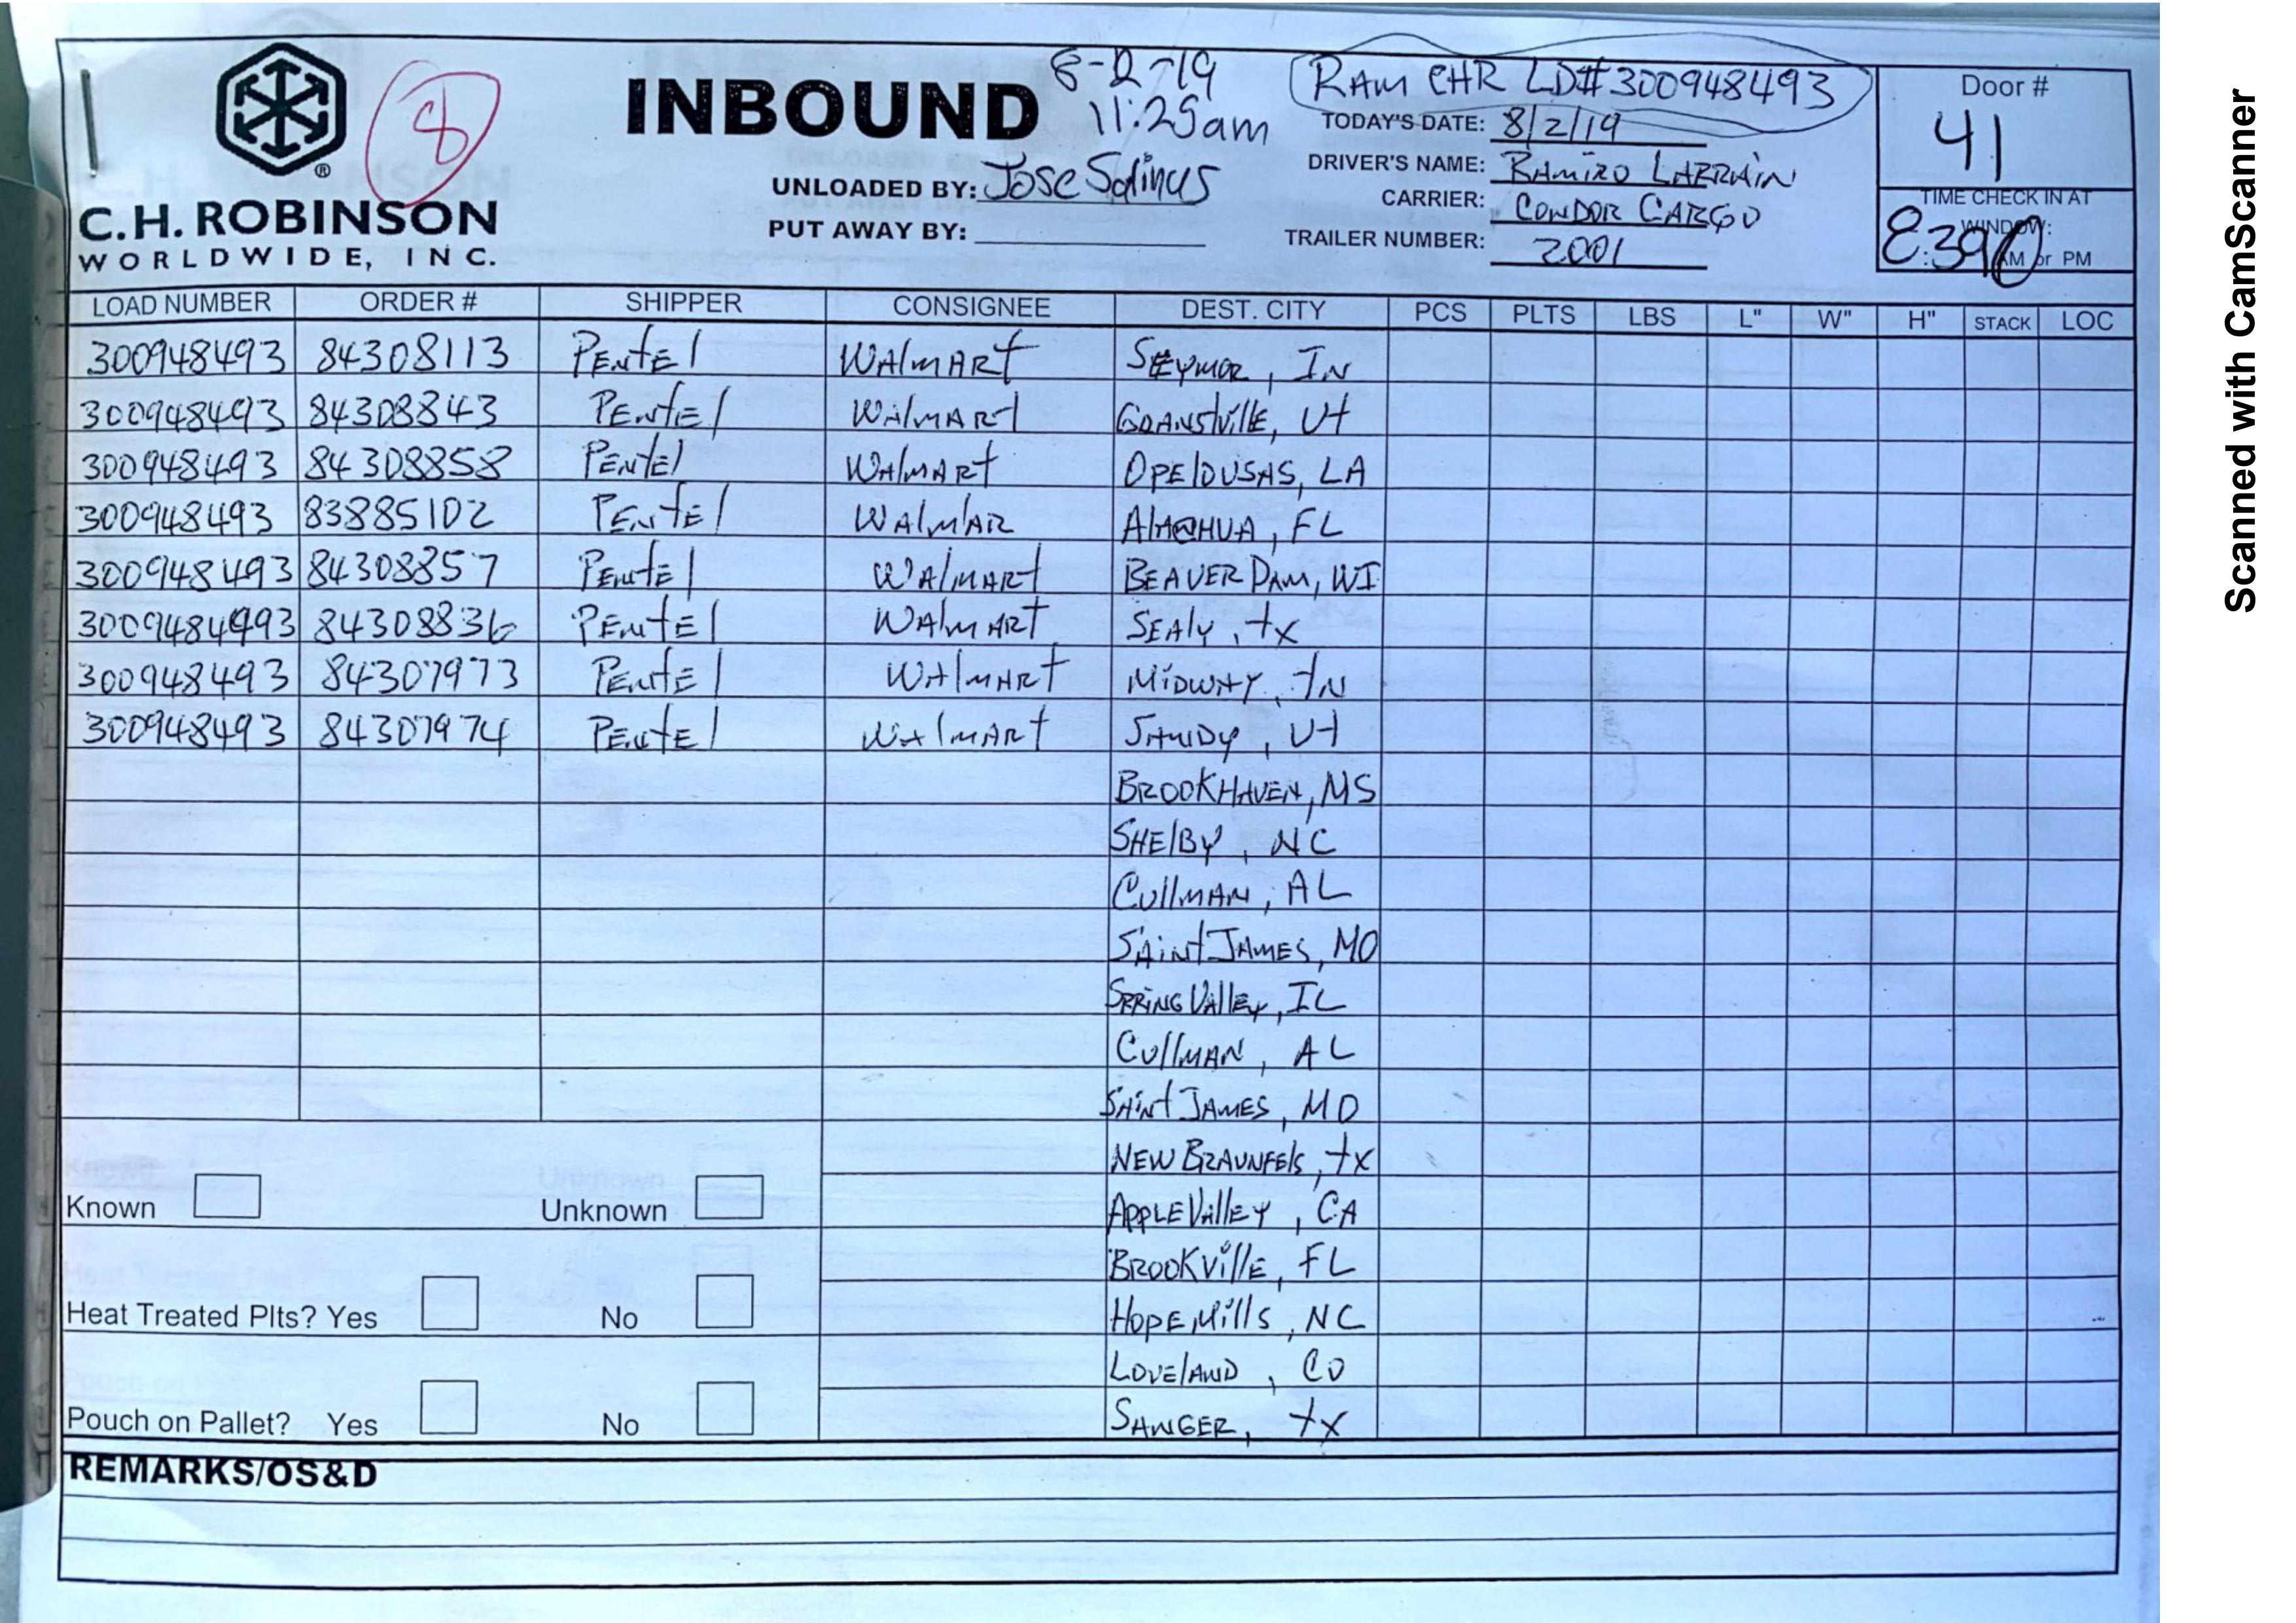 8
INBOUND
8-2-19
11:25am
RAM CHR LD# 300948493
Door #
41
TODAY'S DATE: 8/2/19
DRIVER'S NAME: RAMIRO LARRAIN
CARRIER: CONDOR CARGO
TRAILER NUMBER: 2001
UNLOADED BY: Jose Salinas
PUT AWAY BY:
TIME CHECK IN AT
WINDOW:
8:390 AM or PM
®
C.H. ROBINSON
WORLDWIDE, INC.
LOAD NUMBER ORDER # SHIPPER CONSIGNEE DEST. CITY PCS PLTS LBS L" W" H" STACK LOC
300948493 84308113 PENTEL WALMART SEYMOR, IN
300948493 84308843 PENTEL WALMART GRANSTVILLE, UT
300948493 84308858 PENTEL WALMART OPELOUSAS, LA
300948493 83885102 PENTEL WALMAR ALACHUA, FL
300948493 84308857 PENTEL WALMART BEAVER DAM, WI
300948493 84308836 PENTEL WALMART SEALY, TX
300948493 84307973 PENTEL WALMART MIDWAY, TN
300948493 84307974 PENTEL WALMART SANDY, UT
BROOKHAVEN, MS
SHELBY, NC
CULLMAN, AL
SAINT JAMES, MO
SPRING VALLEY, IL
CULLMAN, AL
SAINT JAMES, MO
NEW BRAUNFELS, TX
APPLE VALLEY, CA
BROOKVILLE, FL
HOPE MILLS, NC
LOVELAND, CO
SANGER, TX
Known Unknown
Heat Treated Plts? Yes No
Pouch on Pallet? Yes No
REMARKS/OS&D
Scanned with CamScanner